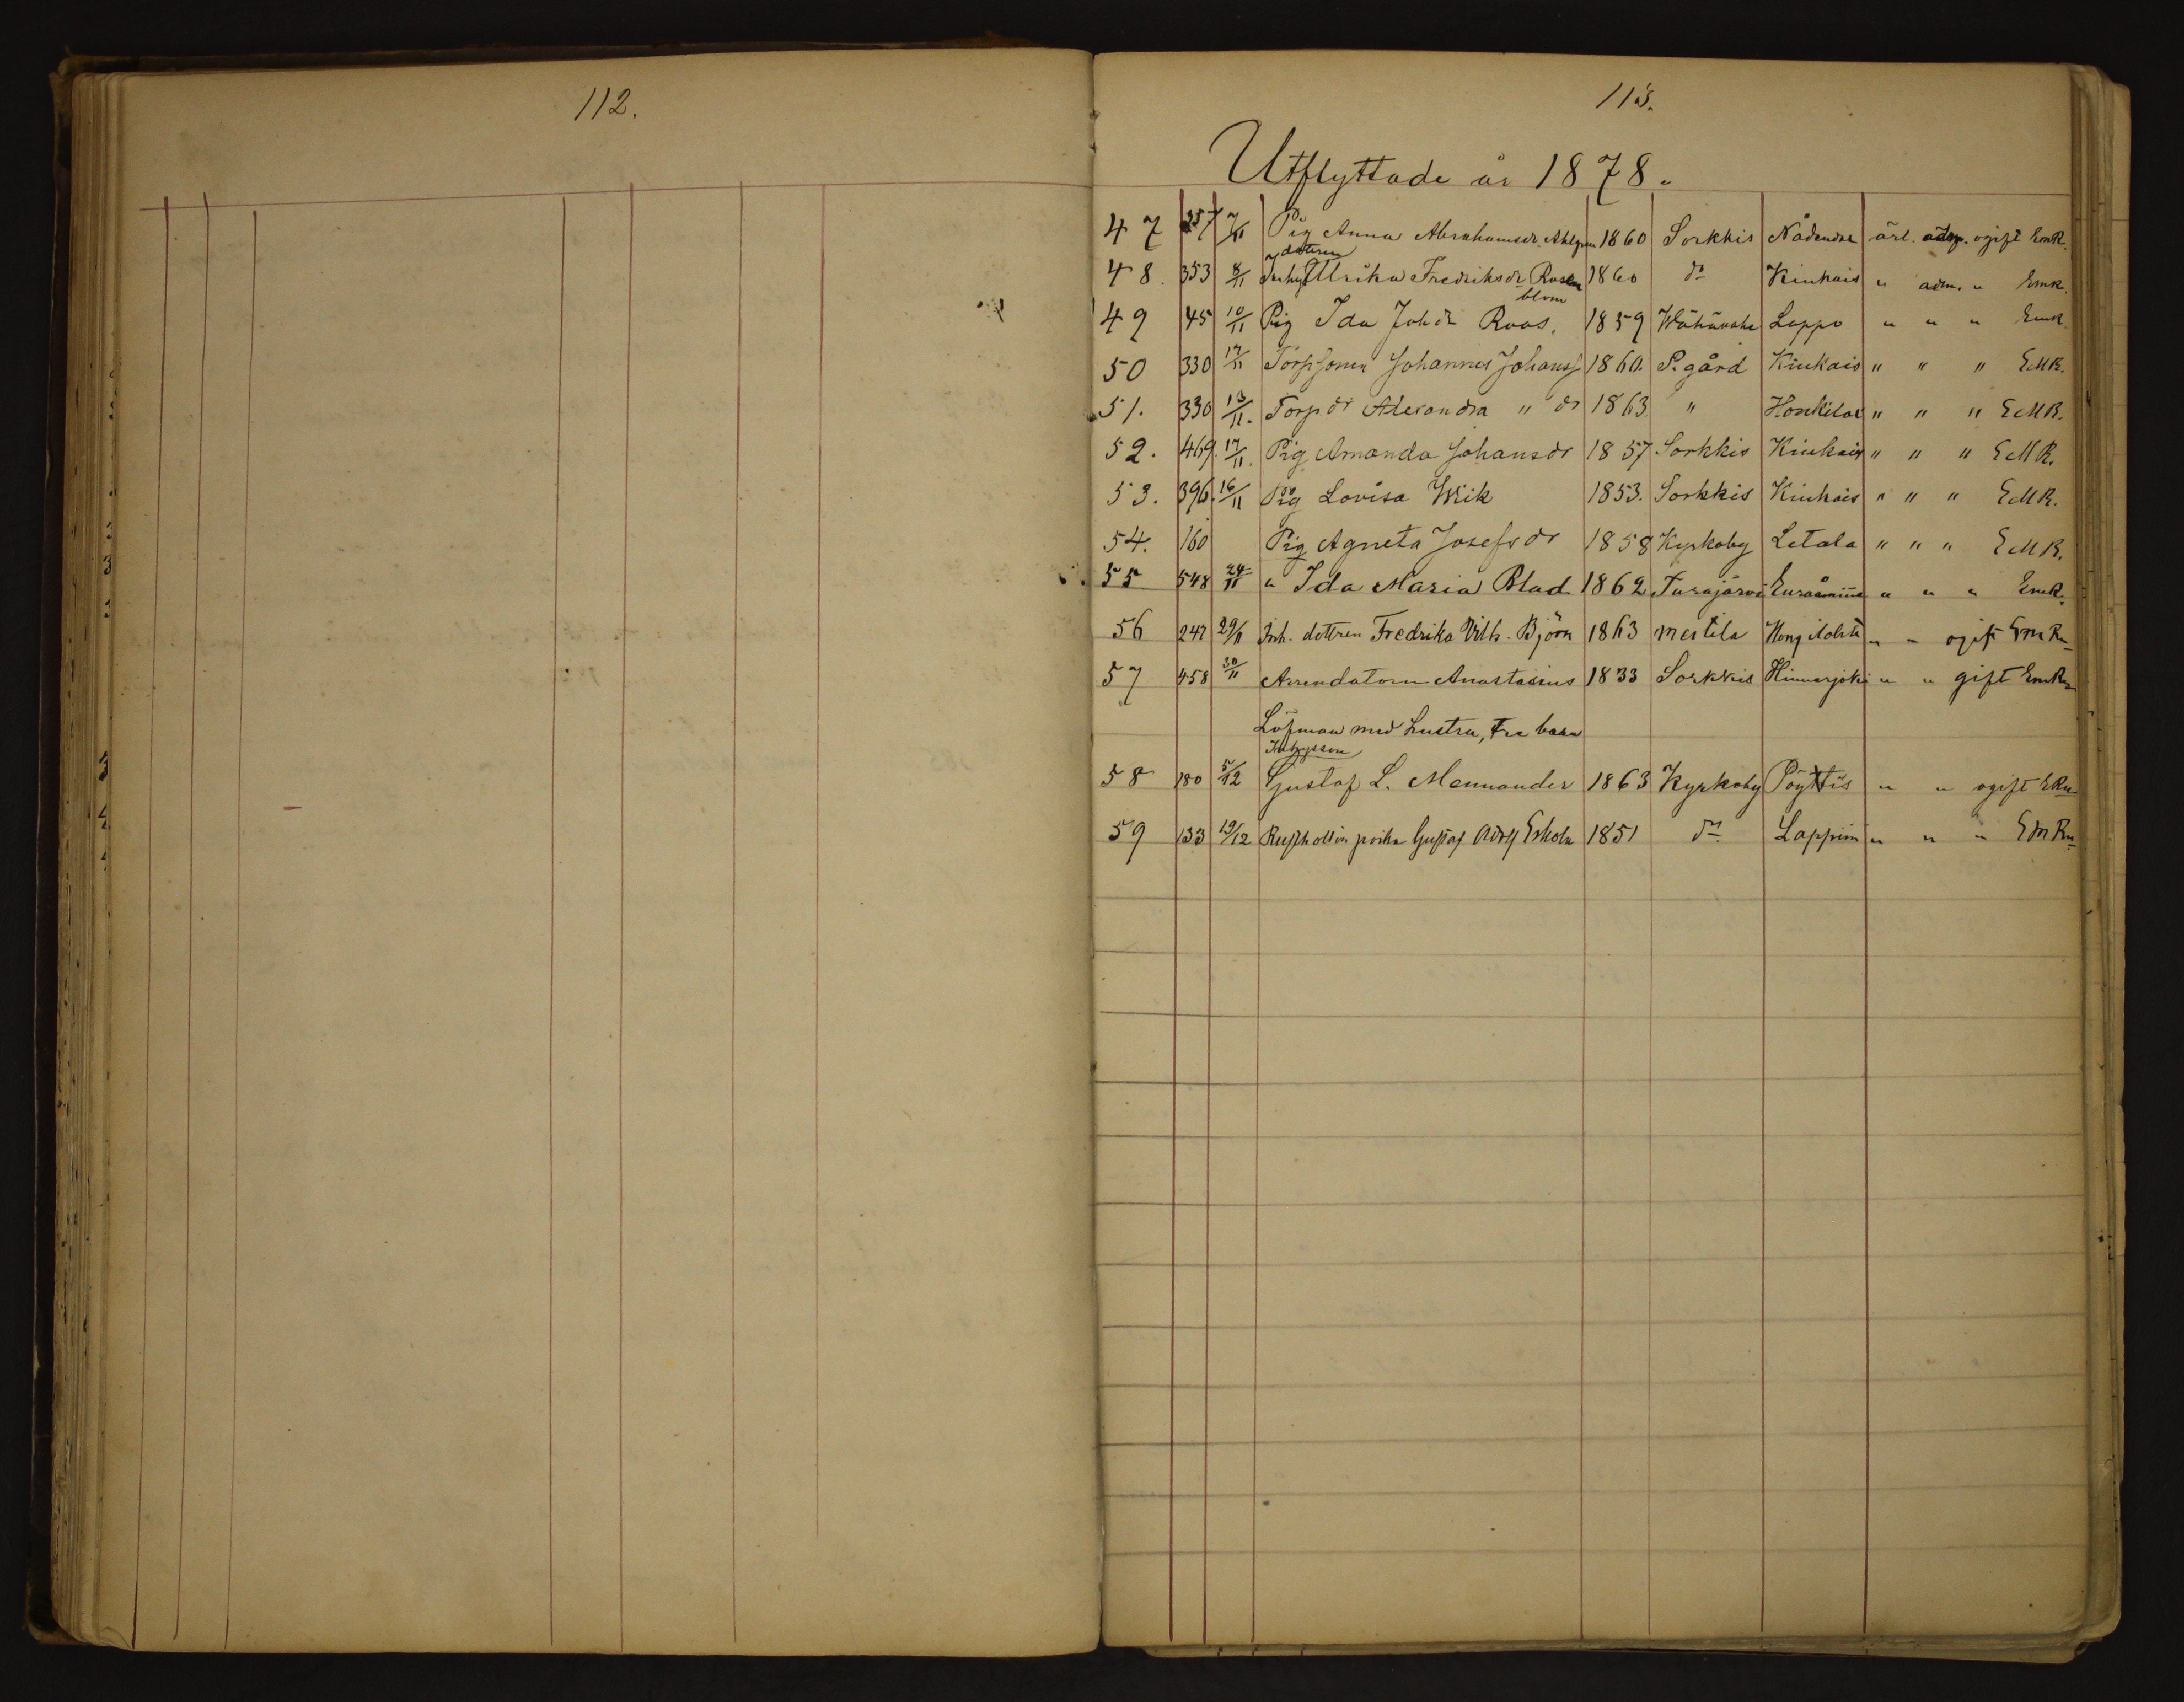 112.
113.
Utflyttade år 1878.
47 357 7/11 Pig Anna Abrahamsdr. Ahlgren 1860 Sorkkis Nådendal ärl. adm. ogift EmR.
dottren
48. 353 8/11 Inhys Ulrika Fredriksdr Rosen 1860 do Kiukais " adm. " EmR.
blom
49 45 10/11 Pig Ida Johdr Roos. 1859 Wähävaha Lappo " " " EmR
50 330 17/11 Torpsonen Johannes Johanss 1860. P.gård Kiukais " " " EMR.
51. 330 13/11. Torpdr Alexandra " dr 1863 " Honkilax " " " EMR.
52. 469. 17/11. Pig Amanda Johansdr 1857 Sorkkis Kiukais " " " EMR.
53. 396. 16/11 Pig Lovisa Wiik 1853. Sorkkis Kiukais " " " EMR.
54. 160 Pig Agneta Josefsdr 1858 Kyrkoby Letala " " " EMR.
55 548 24/11 " Ida Maria Blad 1862 Turajärvi Euraåminne " " " EmR.
56 247 29/11 Inh. dottren Fredrika Vilh. Björn 1863 Mestila " " ogift EmRu
57 458 30/11 Arrendatorn Anastasius 1833 Sorkkis Hinnerjoki " " gift EmRu
Löfman med hustru, tre barn
Inhysson
58 180 5/12 Gustaf L. Mennander 1863 Kyrkoby Pöytis " " ogift ERu
59 133 19/12 Rusthollin poika Gustaf Adolf Eskola 1851 do Lappiin " " " EMRu